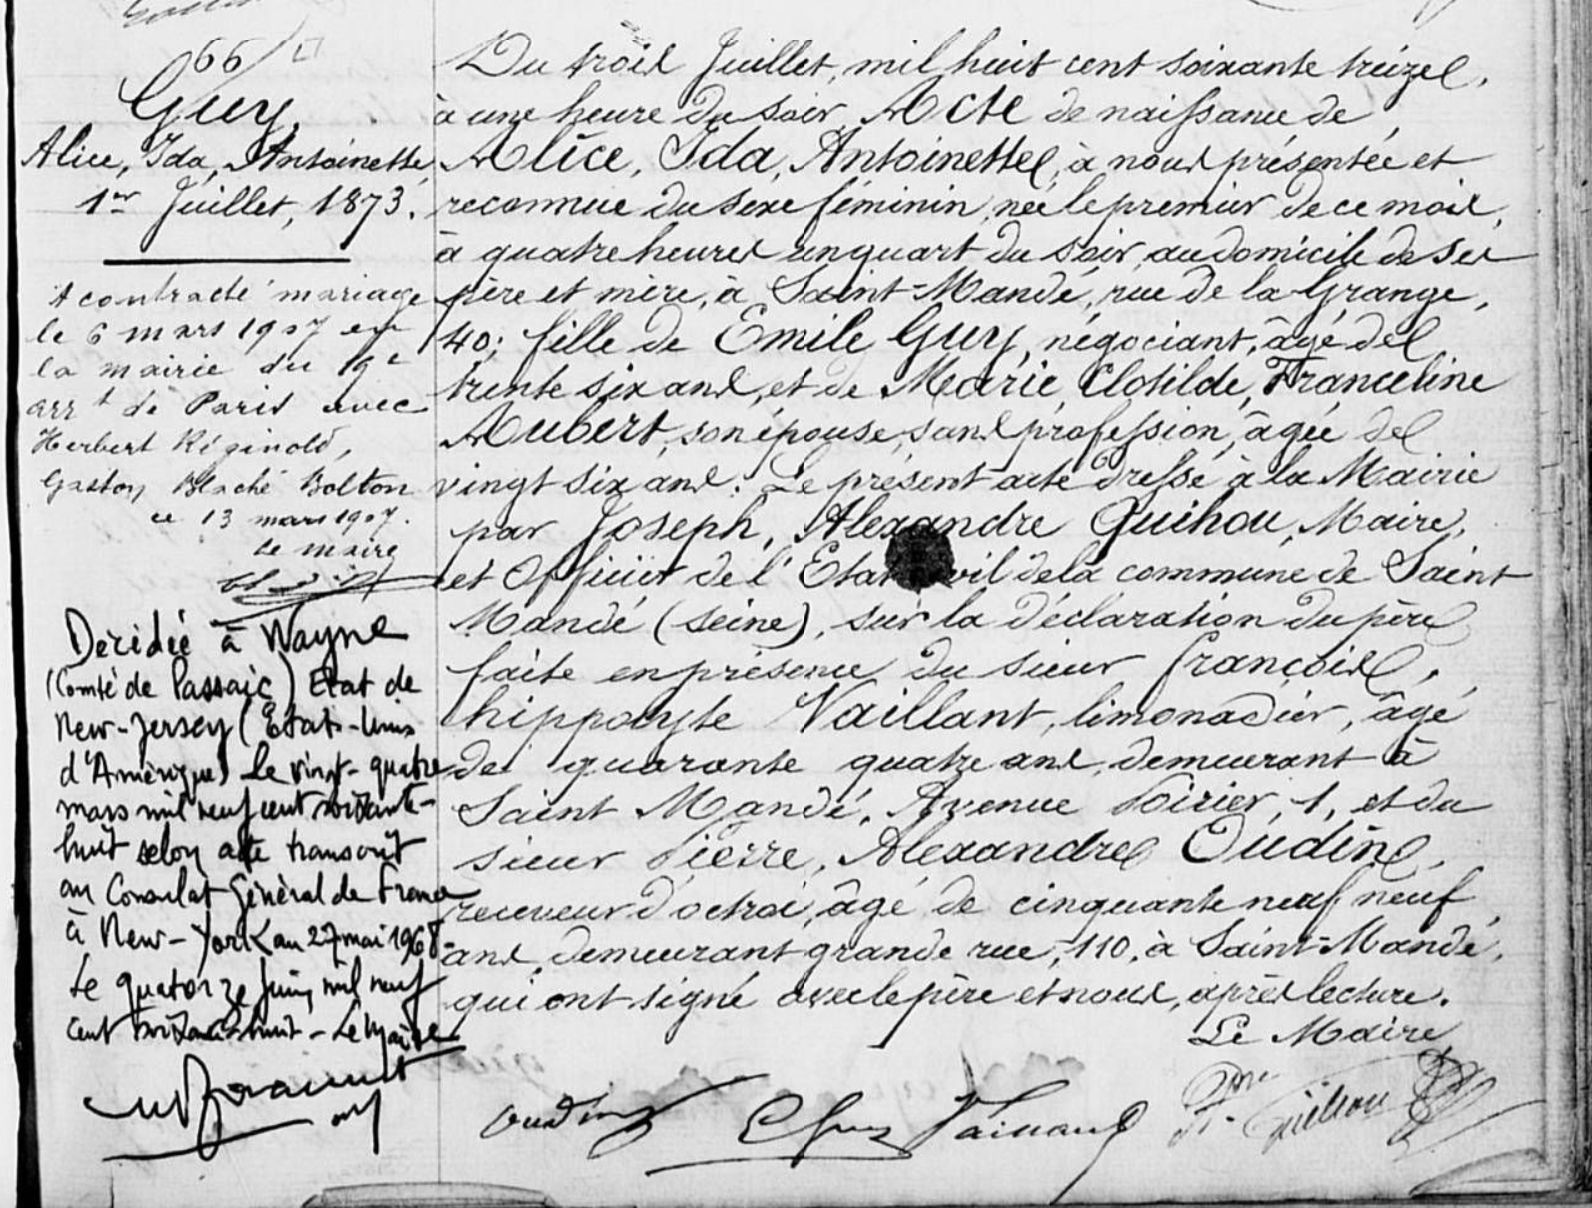 66
Guy,
Alice, Ida, Antoinette,
1er Juillet, 1873.
A contracté mariage
le 6 mars 1907 en
la mairie du 19e
arrt de Paris avec
Herbert Réginold,
Gaston Blaché Bolton
ce 13 mars 1907.
Le maire
Décidée à Wayne
(Comté de Passaic) Etat de
New-Jersey (Etats-Unis
d'Amérique) le vingt-quatre
mars mil neuf cent soixante-
huit selon acte transcrit
au Consulat Général de France
à New-York au 27 mai 1968-
Le quatorze Juin mil neuf
cent soixante huit - Le Maire
Du trois Juillet, mil huit cent soixante treize,
à une heure du soir, Acte de naissance de,
Alice, Ida, Antoinette, à nous présentée et
reconnue du sexe féminin, née le premier de ce mois,
à quatre heures un quart du soir, au domicile de ses
père et mère, à Saint-Mandé, rue de la Grange,
40; fille de Emile Guy, négociant, âgé de
trente six ans, et de Marie, Clotilde, Franceline
Aubert, son épouse, sans profession, âgée de
vingt six ans. Le présent acte dressé à la Mairie
par Joseph, Alexandre Quihou, Maire,
et Officier de l'Etat civil de la commune de Saint
Mandé (Seine), sur la déclaration du père
faite en présence du sieur François,
hippolyte Vaillant, limonadier, âgé
de quarante quatre ans, demeurant à
Saint Mandé, Avenue Poirier, 1, et du
sieur Pierre, Alexandre Oudin,
receveur d'octroi, âgé de cinquante neuf neuf
ans, demeurant grande rue, 110, à Saint-Mandé,
qui ont signé avec le père et nous, après lecture.
Le Maire
Oudin EGuy Vaillant Quihou